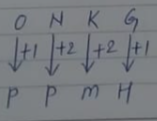 O N K G
↓+1 ↓+2 ↓+2 ↓+1
P P M H